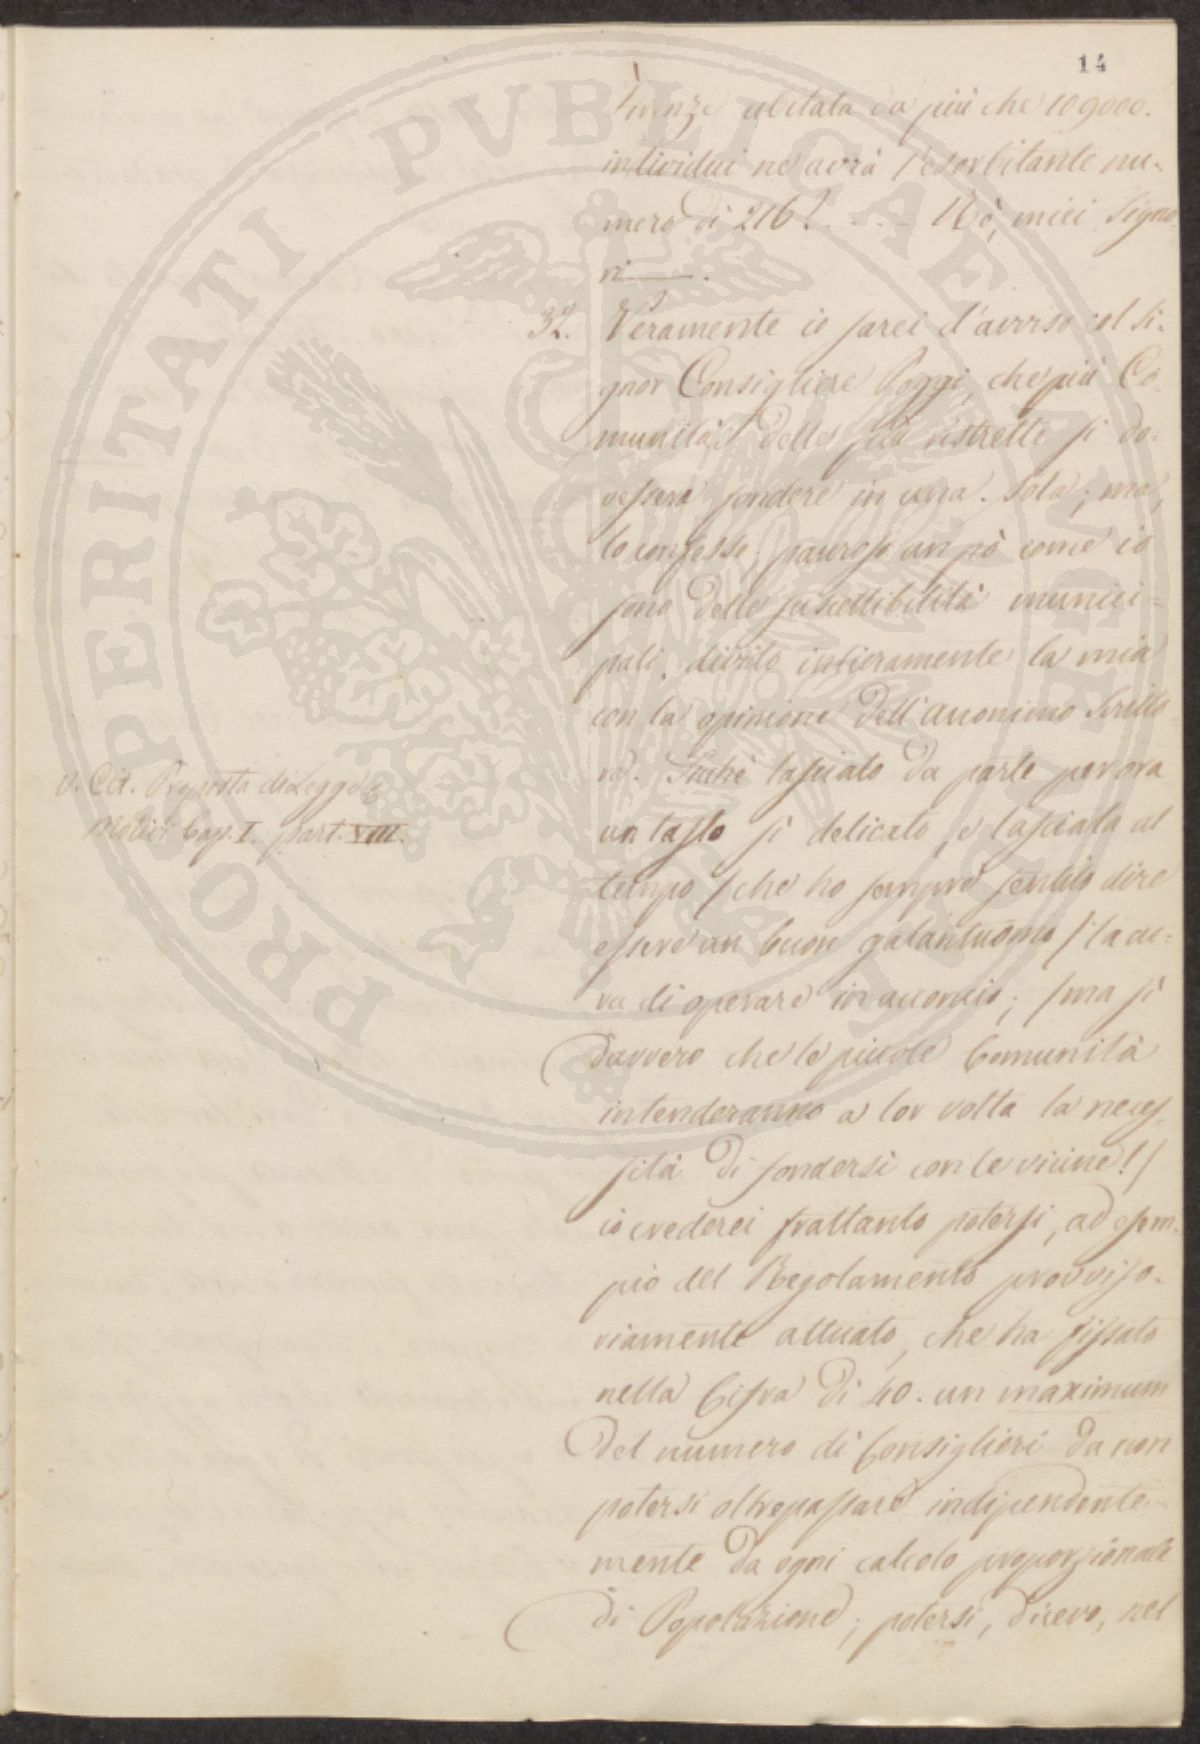 14
Firenze abitata da più che 109000.
individui ne avrà l'esorbitante nu-
mero di 216? . . . . Nò, miei Signo
ri ——.
32. Veramente io sarei d'avviso col Si-
gnor Consigliere Poggi, che più Co-
munità delle più ristrette si do-
vessero fondere in una sola; ma,
lo confesso, pauroso un pò come io
sono delle suscettibilità munici-
pali, divido intieramente la mia
con la opinione dell'anonimo Scritto
re. Sicchè lasciato da parte per ora
V. Cit. Proposta di Legge e
Motivi Cap. I. part. VIII.
un tasto sì delicato, e lasciata al
tempo / che ho sempre sentito dire
essere un buon galantuomo / la cu-
ra di operare in acconcio; / ma sì
davvero che le piccole Comunità
intenderanno a lor volta la neces-
sità di fondersi con le vicine! /
io crederei frattanto potersi, ad esem-
pio del Regolamento provviso-
riamente attuato, che ha fissato
nella Cifra di 40. un maximum
del numero di Consiglieri da non
potersi oltrepassare indipendente-
mente da ogni calcolo proporzionale
di Popolazione; potersi, dicevo, nel
PROSPERITATI PVBLICAE AVGENDAE